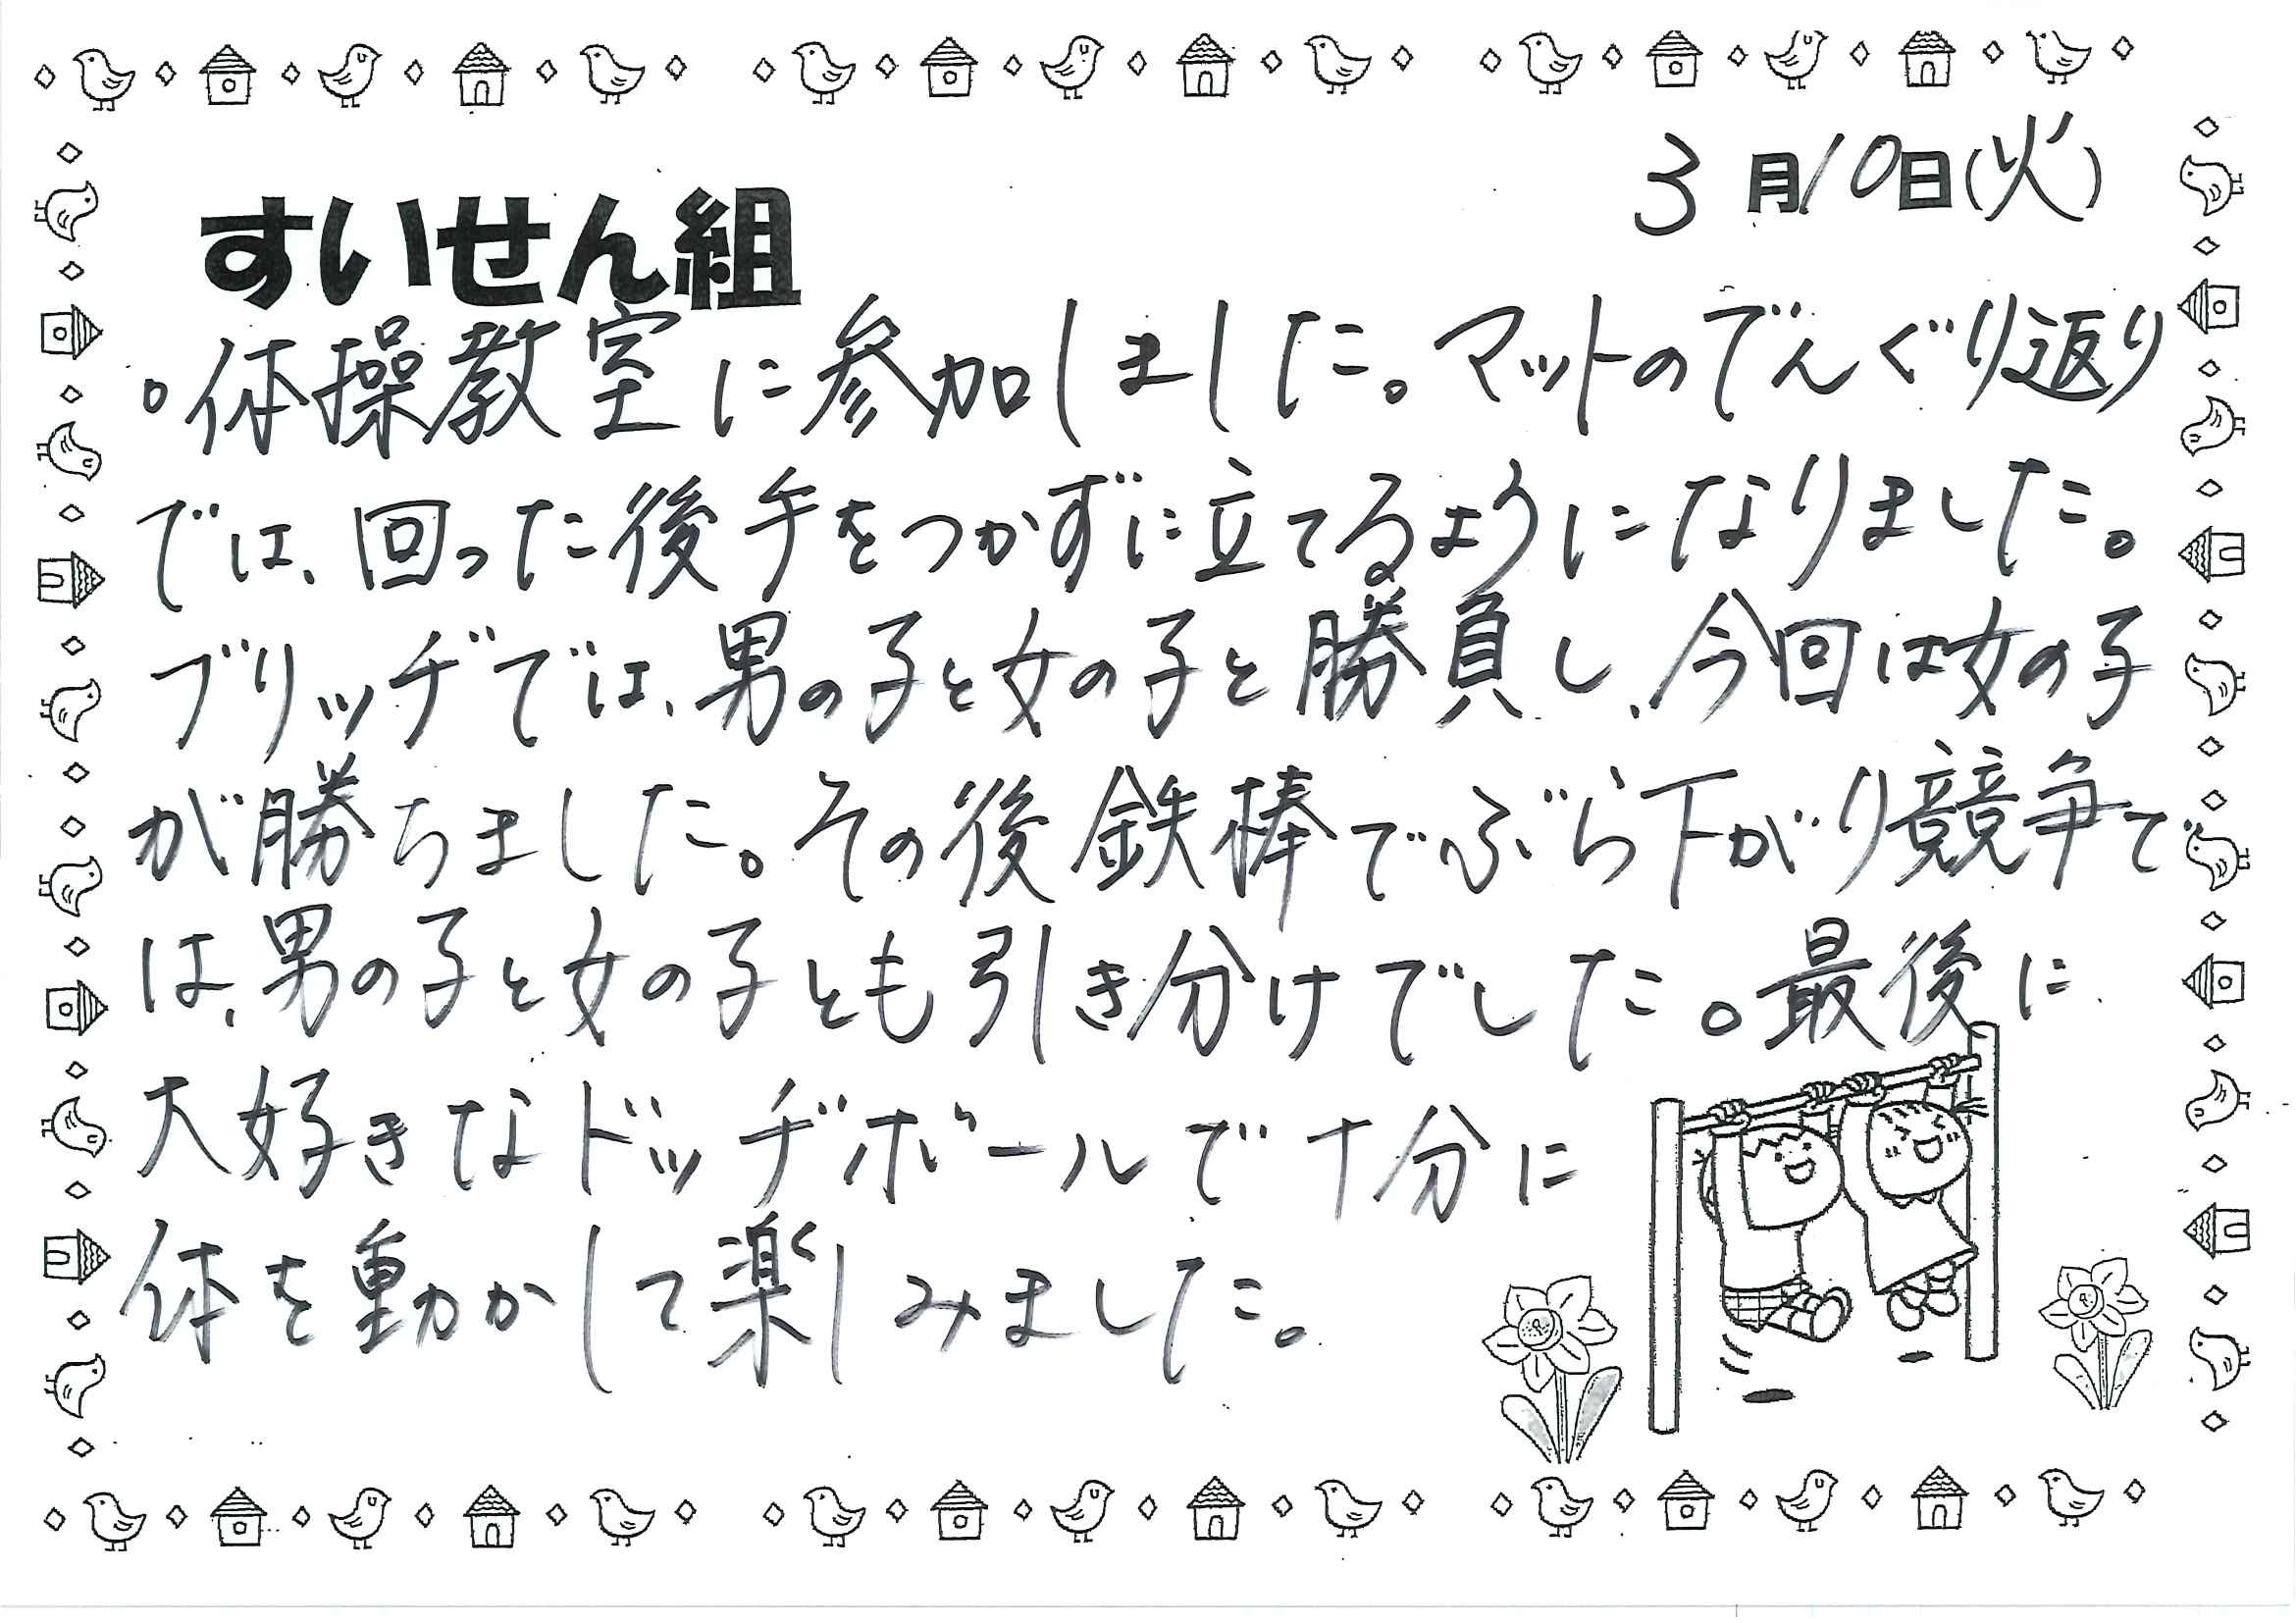 3月10日(火)
すいせん組
。体操教室に参加しました。マットのでんぐり返り
では、回った後手をつかずに立てるようになりました。
ブリッヂでは、男の子と女の子と勝負し、今回は女の子
が勝ちました。その後鉄棒でぶら下がり競争で
は、男の子と女の子とも引き分けでした。最後に
大好きなドッヂボールで十分に
体を動かして楽しみました。